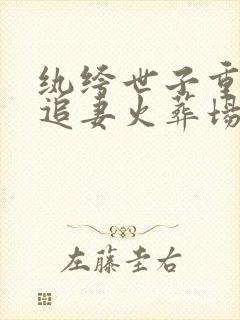 纨绔世子重
追妻火葬场
左藤圭右